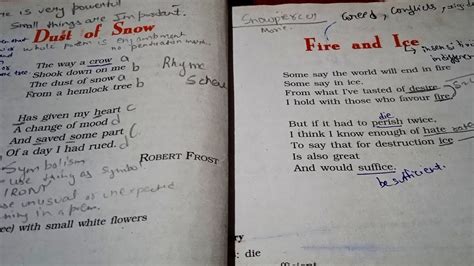 is very powerful
Small things are Important.
Dust of Snow
whole poem is enjambment
no punctuation mark
The way a crow a
Shook down on me b
The dust of snow a
From a hemlock tree b
Rhyme
Has given my heart c
A change of mood d
And saved some part c
Of a day I had rued. d
ROBERT FROST
Symbolism
use thing as symbol
IRONY
use unusual or unexpected
ee) with small white flowers
Greed, conflicts,
Fire and Ice
Some say the world will end in fire
Some say in ice.
From what I've tasted of desire
I hold with those who favour fire.
die
But if it had to perish twice,
I think I know enough of hate
To say that for destruction ice
Is also great
And would suffice.
be sufficient.
ry
: die